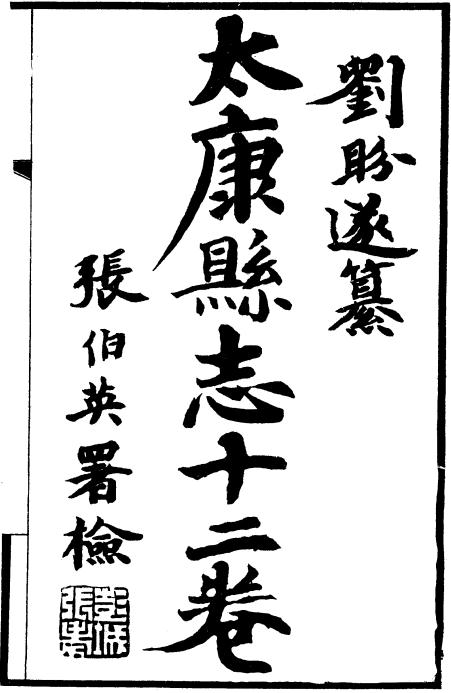 劉盼遂纂
太康縣志十二卷
張伯英署檢